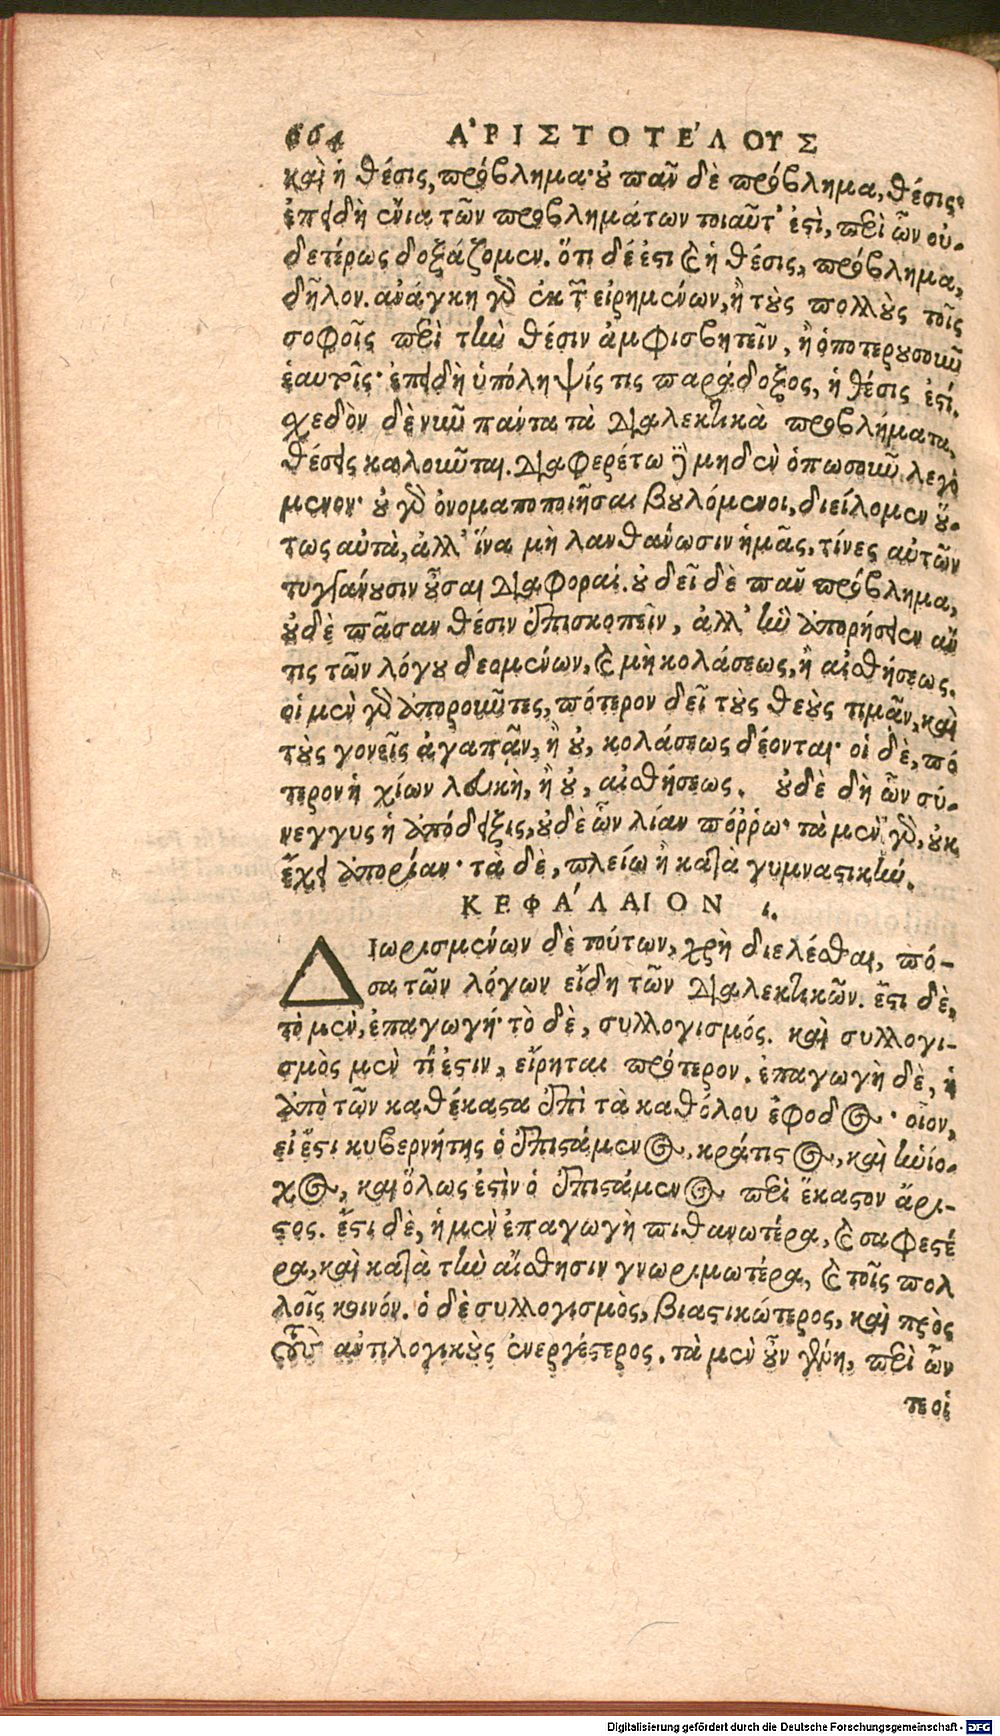 664 ἈΡΙΣΤΟΤΈΛΟΥΣ
καὶ ἡ θέσις, πρόβλημα· οὐ πᾶν δὲ πρόβλημα, θέσις·
ἐπειδὴ ἔνια τῶν προβλημάτων τοιαῦτ' ἐστὶ, περὶ ὧν οὐ-
δετέρως δοξάζομεν. ὅτι δέ ἐστι καὶ ἡ θέσις, πρόβλημα,
δῆλον. ἀνάγκη γὰρ ἐκ τῶν εἰρημένων, ἢ τοὺς πολλοὺς τοῖς
σοφοῖς περὶ τὴν θέσιν ἀμφισβητεῖν, ἢ ὁποτερουσοῦν
ἑαυτοῖς· ἐπειδὴ ὑπόληψίς τις παράδοξος, ἡ θέσις ἐστί.
σχεδὸν δὲ νῦν πάντα τὰ διαλεκτικὰ προβλήματα,
θέσεις καλοῦνται. διαφερέτω δὲ μηδὲν ὁπωσοῦν λεγό
μενον· οὐ γὰρ ὀνοματοποιῆσαι βουλόμενοι, διείλομεν οὕ-
τως αὐτὰ, ἀλλ' ἵνα μὴ λανθάνωσιν ἡμᾶς, τίνες αὐτῶν
τυγχάνουσιν οὖσαι διαφοραί. οὐ δεῖ δὲ πᾶν πρόβλημα,
οὐδὲ πᾶσαν θέσιν ἐπισκοπεῖν, ἀλλ' ἣν ἀπορήσειεν ἄν
τις τῶν λόγου δεομένων, καὶ μὴ κολάσεως, ἢ αἰσθήσεως.
οἱ μὲν γὰρ ἀποροῦντες, πότερον δεῖ τοὺς θεοὺς τιμᾶν, καὶ
τοὺς γονεῖς ἀγαπᾶν, ἢ οὐ, κολάσεως δέονται· οἱ δὲ, πό
τερον ἡ χίων λευκὴ, ἢ οὐ, αἰσθήσεως. οὐδὲ δὴ ὧν σύ-
νεγγυς ἡ ἀπόδειξις, οὐδὲ ὧν λίαν πόῤῥω· τὰ μὲν γὰρ, οὐκ
ἔχει ἀπορίαν· τὰ δὲ, πλείω ἢ κατὰ γυμναστικήν.
ΚΕΦΆΛΑΙΟΝ ι.
Διωρισμένων δὲ τούτων, χρὴ διελέσθαι, πό-
σα τῶν λόγων εἴδη τῶν διαλεκτικῶν. ἔστι δὲ,
τὸ μὲν, ἐπαγωγή· τὸ δὲ, συλλογισμός. καὶ συλλογι-
σμὸς μὲν τί ἐστιν, εἴρηται πρότερον. ἐπαγωγὴ δὲ, ἡ
ἀπὸ τῶν καθέκαστα ἐπὶ τὰ καθόλου ἔφοδος· οἷον,
εἰ ἔστι κυβερνήτης ὁ ἐπιστάμενος, κράτιστος, καὶ ἡνίο-
χος, καὶ ὅλως ἐστὶν ὁ ἐπιστάμενος περὶ ἕκαστον ἄρι-
στος. ἔστι δὲ, ἡ μὲν ἐπαγωγὴ πιθανωτέρα, καὶ σαφεστέ
ρα, καὶ κατὰ τὴν αἴσθησιν γνωριμωτέρα, καὶ τοῖς πολ
λοῖς κοινόν. ὁ δὲ συλλογισμὸς, βιαστικώτερος, καὶ πρὸς
τοὺς ἀντιλογικοὺς ἐνεργέστερος. τὰ μὲν οὖν γένη, περὶ ὧν
τε οἱ
Digitalisierung gefördert durch die Deutsche Forschungsgemeinschaft - DFG